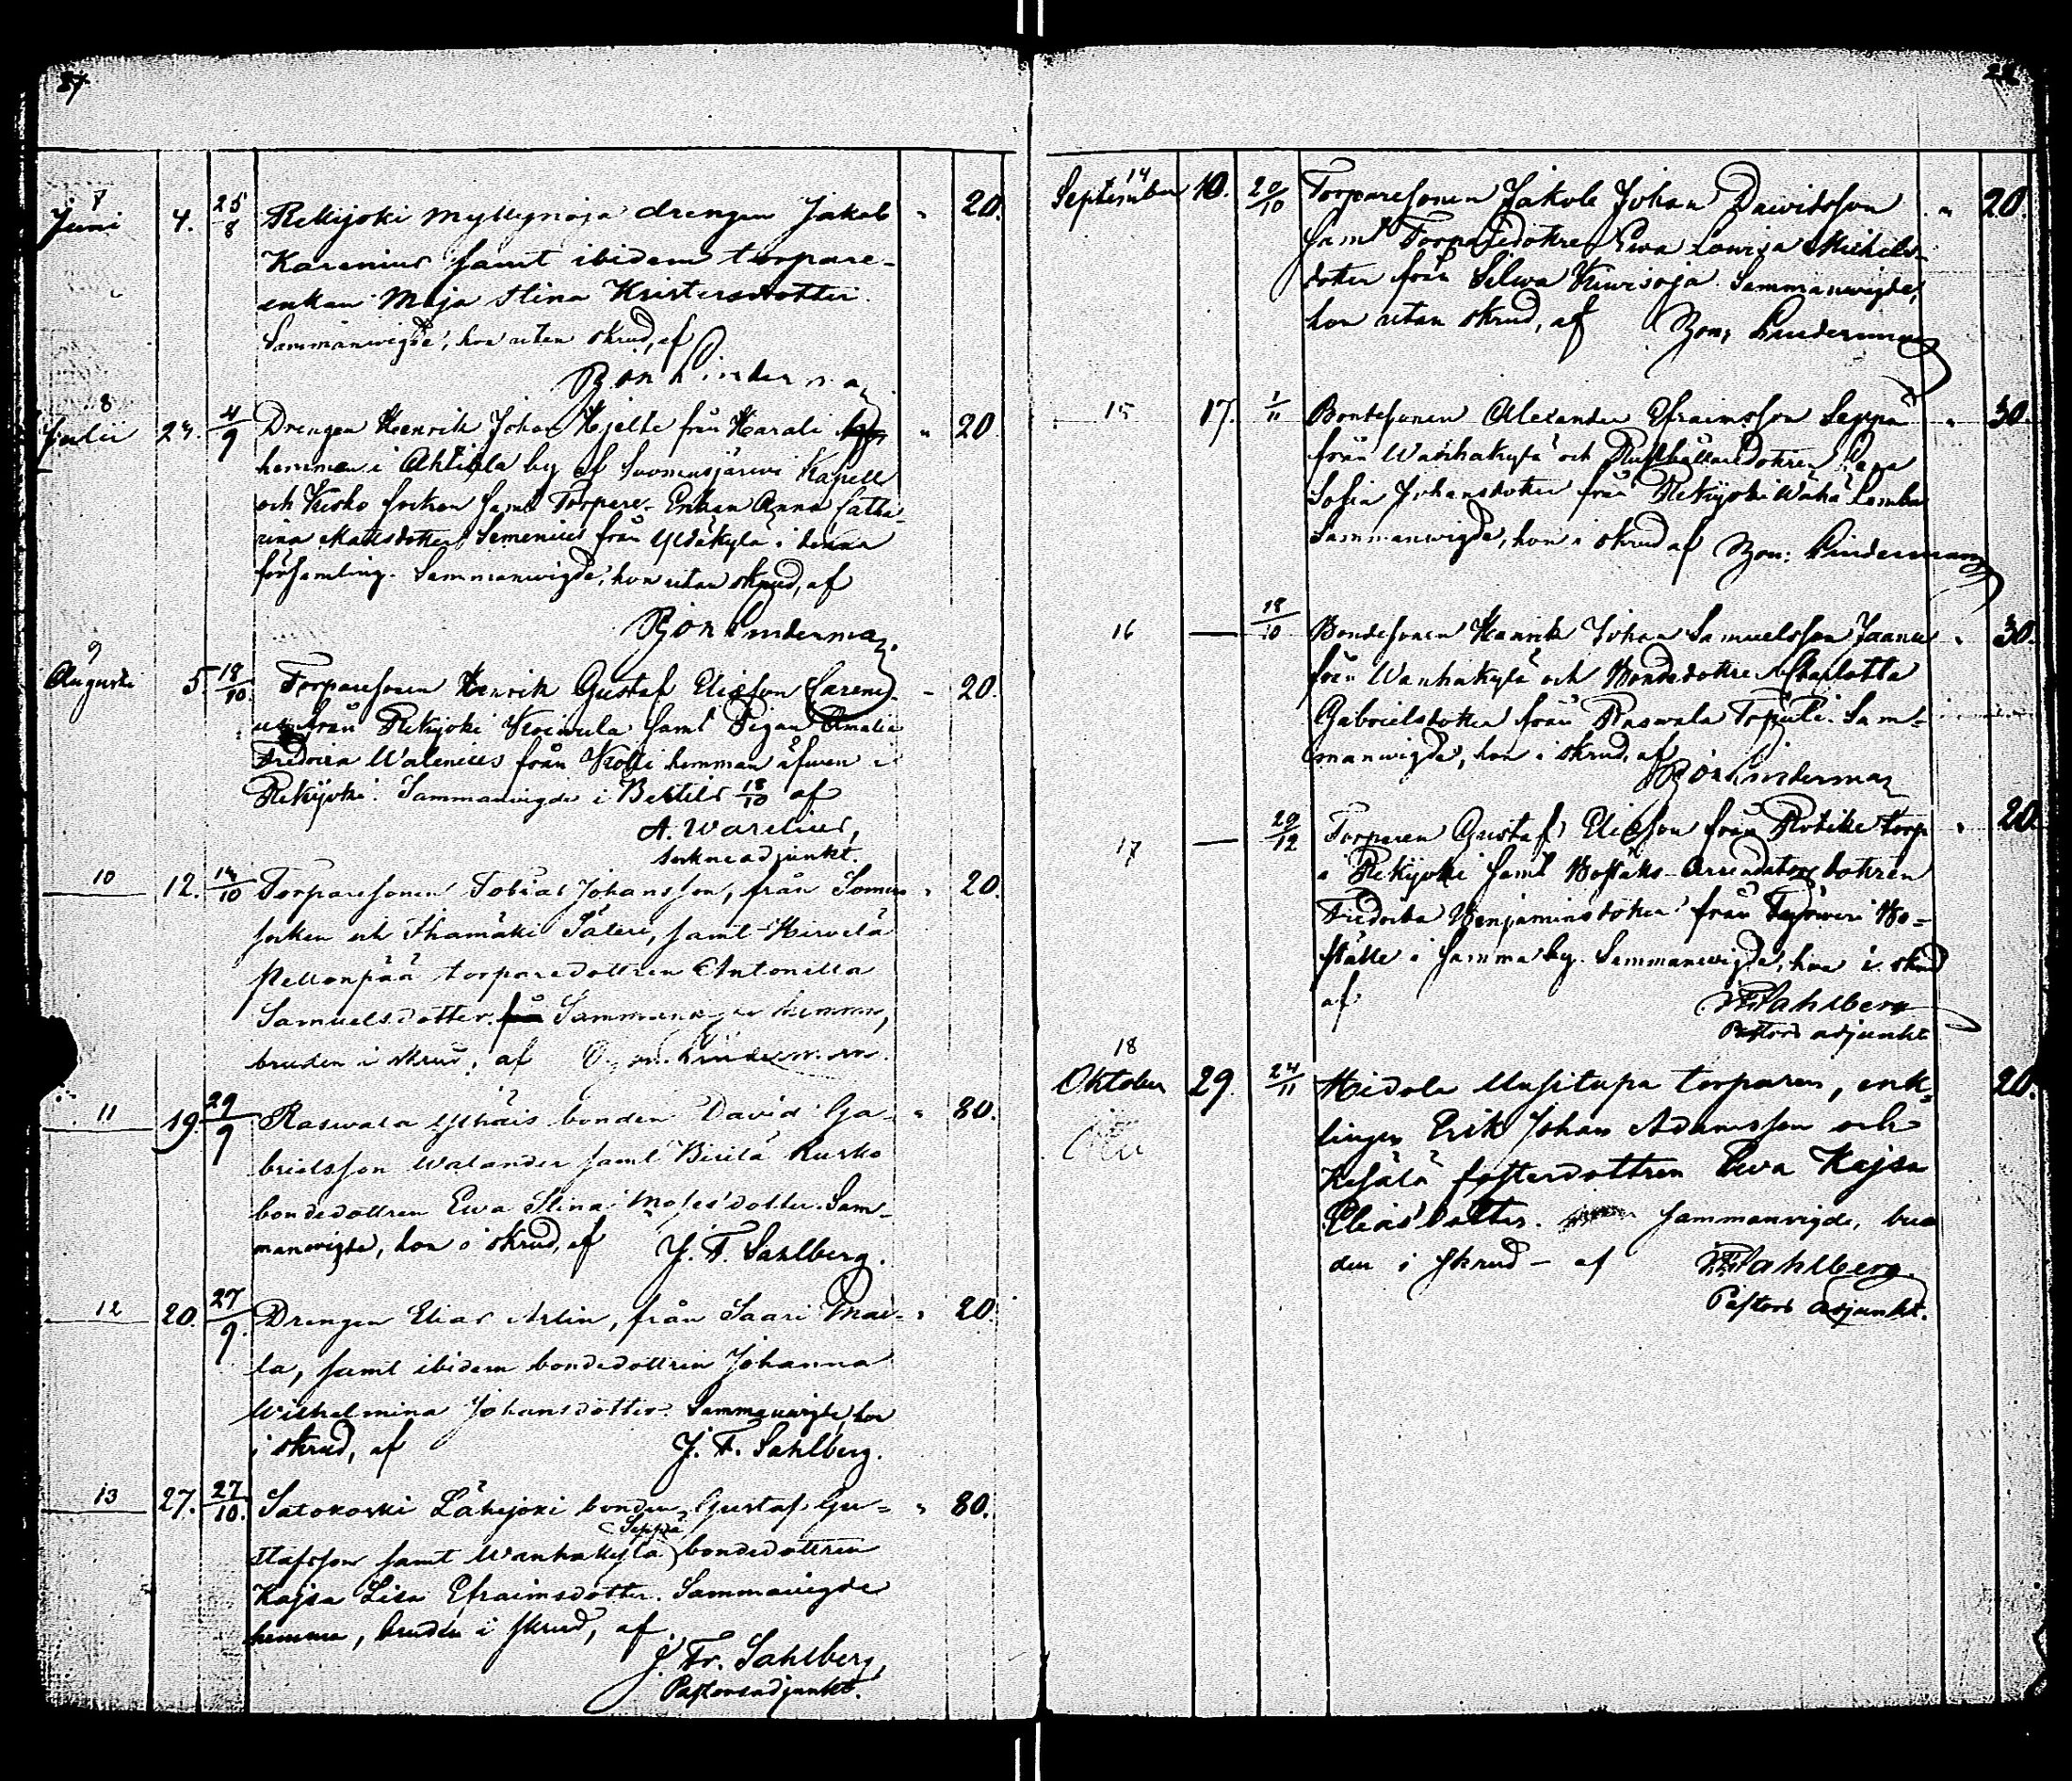 27
7
Juni 4. 25/8 Rekijoki Myllynoja drengen Jakob " 20.
Karenius samt ibidem torpare-
enkan Maja Stina Kristersdotter.
Sammanvigde, hon utan skrud, af
Bj on Linderma
8
Julii 23. 4/9 Drengen Henrik Johan Hjelte från Harali " 20
hemman i Ahtiala by af Suomusjärvi Kapell
och Kisko socken samt Torpare-Enkan Anna Catha-
rina Matsdotter Semenius från Yldäkylä i denna
församling. Sammanvigde, hon utan skrud, af
Bj on Linderman
9
Augusti 5. 18/10. Torparesonen Henrik Gustaf Eliesson Careni- - 20.
us från Rekijoki Koivula samt Pigan Amalia
Fredrica Walenius från Kolli hemman äfven i
Rekijoki. Sammanvigde i Bertils 18/10 af
A. Warelius,
sockneadjunkt.
10 12. 14/10 Torparesonen Tobias Johansson, från Somero " 20.
socken och Ihamäki Säteri, samt Hirvelä
Pellonpää torparedottren Antonetta
Samuelsdotter. Sammanvigde hemma,
bruden i skrud, af Linderman.
11 19. 29/9 Raswala Ylhäis bonden David Ga- " 80.
brielsson Walander samt Kurko
bondedottren Ewa Stina Mosesdotter. Sam-
manvigde, hon i skrud, af J. F. Sahlberg.
12 20. 27/9. Drengen Elias Arlin, från Saari Mai- " 20.
la, samt ibidem bondedottren Johanna
Wilhelmina Johansdotter. Sammanvigde, hon
i skrud, af J. F. Sahlberg.
13 27. 27/10. Satokoski Lähejoki bonden Gustaf Gu- " 80.
Seppä
stafsson samt Wanhakylä bondedottren
Kajsa Lisa Efraimsdotter. Sammanvigde
hemma, bruden i skrud, af
J. Fr. Sahlberg,
Pastorsadjunkt.
28
14
September 10. 20/10 Torparesonen Jakob Johan Davidsson " 20.
samt Torparedottren Ewa Lowisa Michels-
dotter från Silwa Kiwisoja. Sammanvigde,
hon utan skrud, af Linderman
15 17. 1/11 Bondesonen Alexander Efraimsson Seppä " 30.
från Wanhakylä och Rusthållaredottren
Sofia Johansdotter från Rekijoki Wähä Lemba
Sammanvigde, hon i skrud af Linderman
16 — 18/10 Bondesonen Henrik Johan Samuelsson Jaanu " 30.
från Wanhakylä och Bondedottren Charlotta
Gabrielsdotter från Raswala Töpuli. Sam-
manvigde, hon i skrud, af
Linderman
17 — 29/12 Torparen Gustaf Eliesson från Rotike torp " 20.
i Rekijoki samt Boställs-Arrendatorsdottren
Fredrika Benjaminsdotter från Bo-
ställe i samma by. Sammanvigde, hon i skrud
af Sahlberg
Pastors adjunkt
18
Oktober 29. 24/11 Hidola Uusitupa torparen, enk- 20.
lingen Erik Johan Adamsson och
Kesälä fosterdottren Ewa Kajsa
Eliasdotter. sammanvigde, bru
den i skrud - af Sahlberg.
Pastors adjunkt.